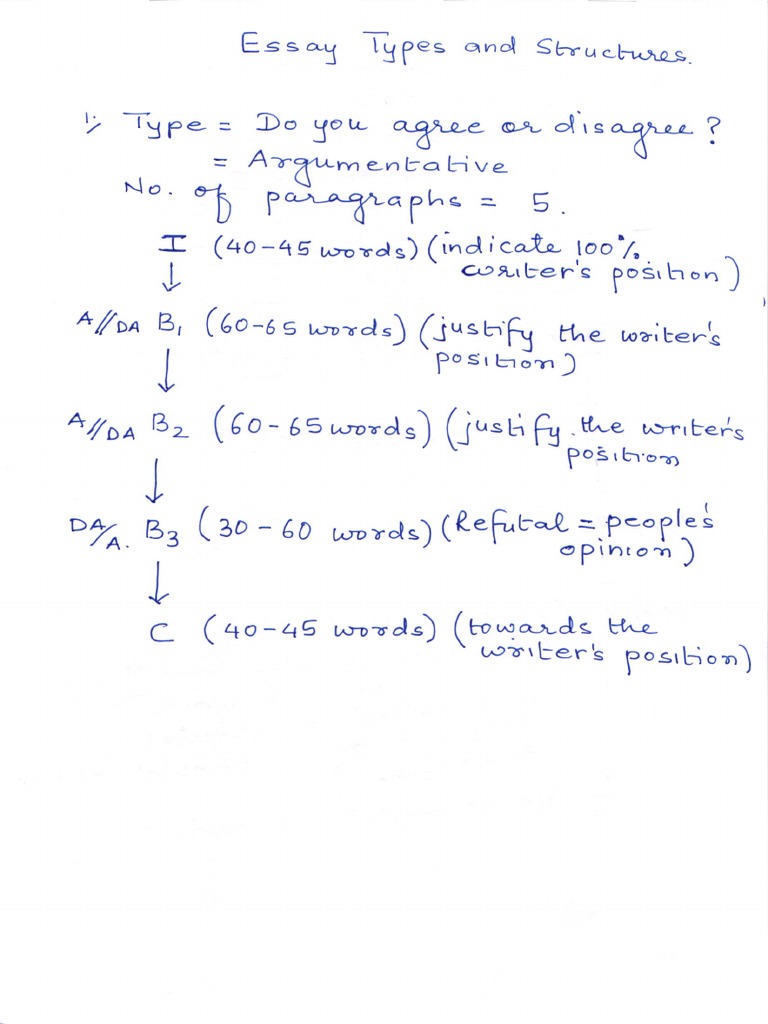 Essay Types and Structures.
1) Type = Do you agree or disagree?
= Argumentative
No. of paragraphs = 5.
I (40-45 words) (indicate 100%
writer's position)
↓
A//DA B₁ (60-65 words) (justify the writer's
position)
↓
A//DA B₂ (60-65 words) (justify the writer's
position
↓
DA/A. B₃ (30-60 words) (Refutal = people's
opinion)
↓
C (40-45 words) (towards the
writer's position)